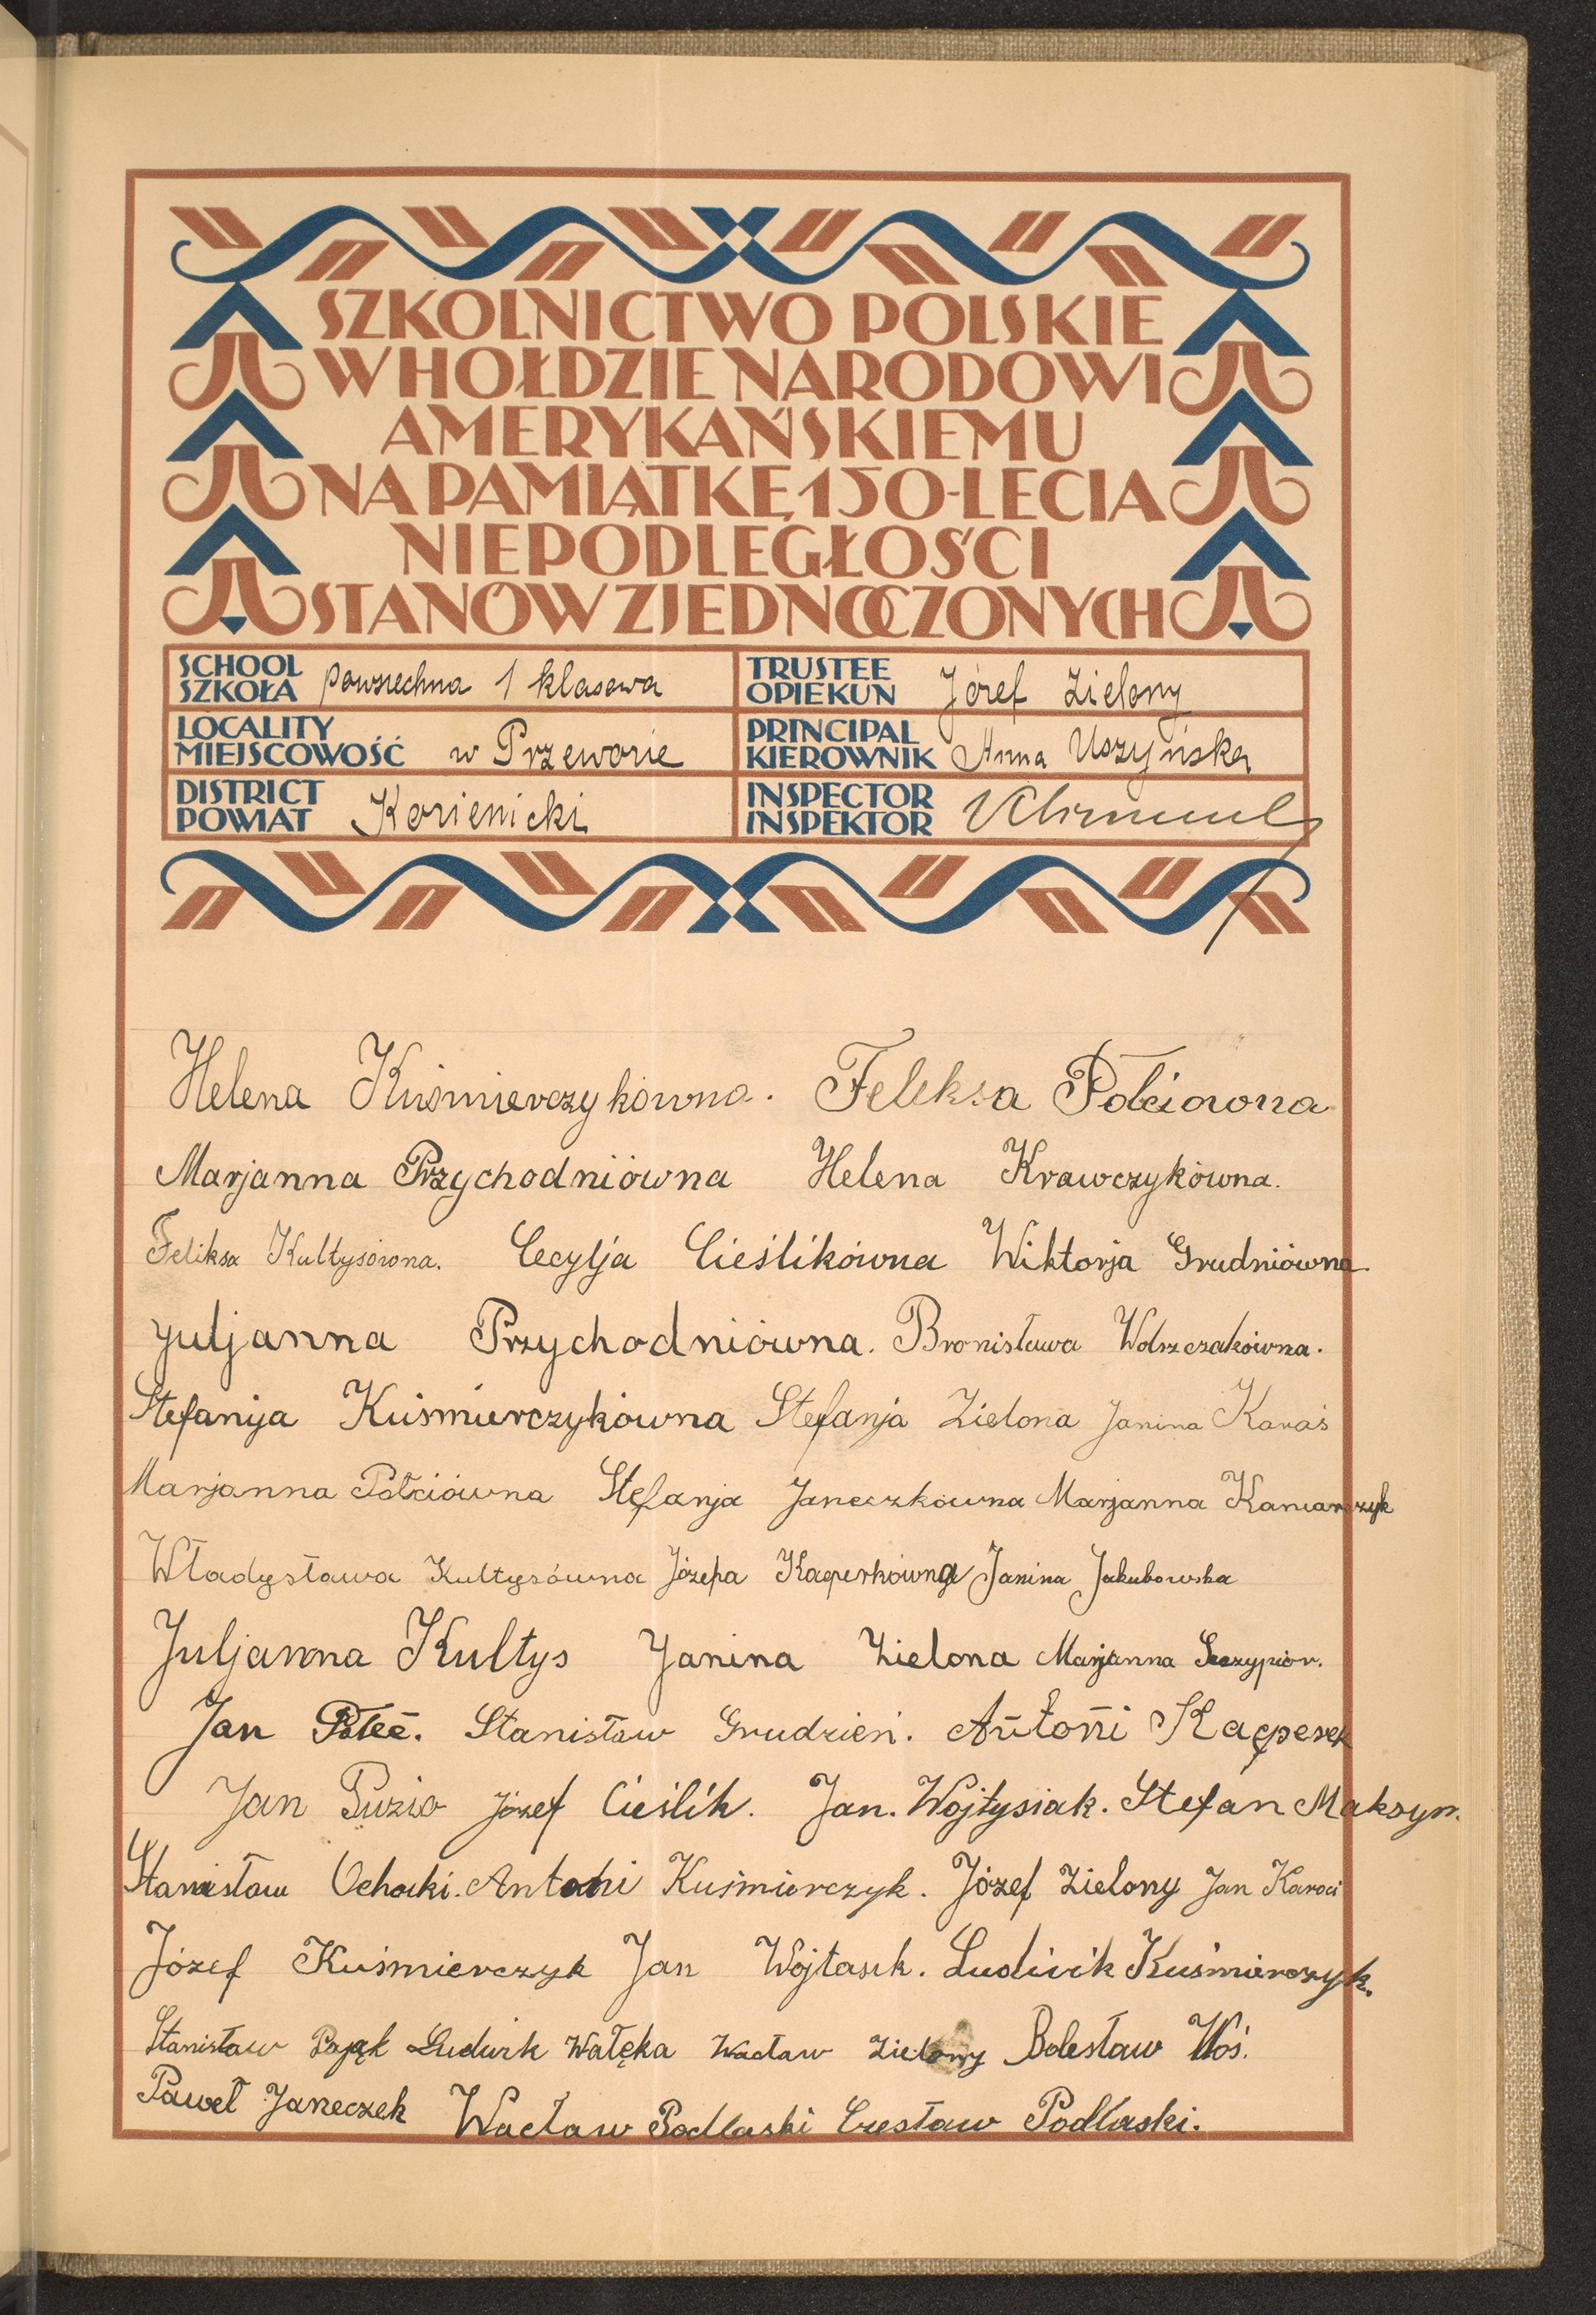 SZKOLNICTWO POLSKIE
W HOŁDZIE NARODOWI
AMERYKAŃSKIEMU
NA PAMIĄTKĘ 150-LECIA
NIEPODLEGŁOŚCI
STANÓW ZJEDNOCZONYCH
SCHOOL
SZKOŁA powszechna 1 klasowa
TRUSTEE
OPIEKUN Józef Zielony
LOCALITY
MIEJSCOWOŚĆ w Przewozie
PRINCIPAL
KIEROWNIK Anna Uszyńska
DISTRICT
POWIAT Kozienicki
INSPECTOR
INSPEKTOR
Helena Kuśmierczykówna. Feliksa Połciówna
Marjanna Przychodniówna Helena Krawczykówna.
Feliksa Kultysówna. Cecylja Cieślikówna Wiktorja Grudniówna.
Juljanna Przychodniówna. Bronisława Wolszczakówna.
Stefanija Kuśmierczykówna Stefanja Zielona Janina Karaś
Marjanna Połciówna Stefanja Janeczkówna Marjanna Kaniarczyk
Władysława Kultysówna Józefa Kacperkówna Janina Jakubowska
Juljanna Kultys Janina Zielona Marjanna Szczypior.
Jan Połeć. Stanisław Grudzień. Antoni Kacperek
Jan Puzio Józef Cieślik. Jan. Wojtysiak. Stefan Maksym.
Stanisław Ochocki. Antoni Kuśmierczyk. Józef Zielony Jan
Józef Kuśmierczyk Jan Wojtasik. Ludwik Kuśmierczyk.
Stanisław Pająk Ludwik Wałęka Wacław Zielony Bolesław Woś.
Paweł Janeczek Wacław Podlaski Czesław Podlaski.